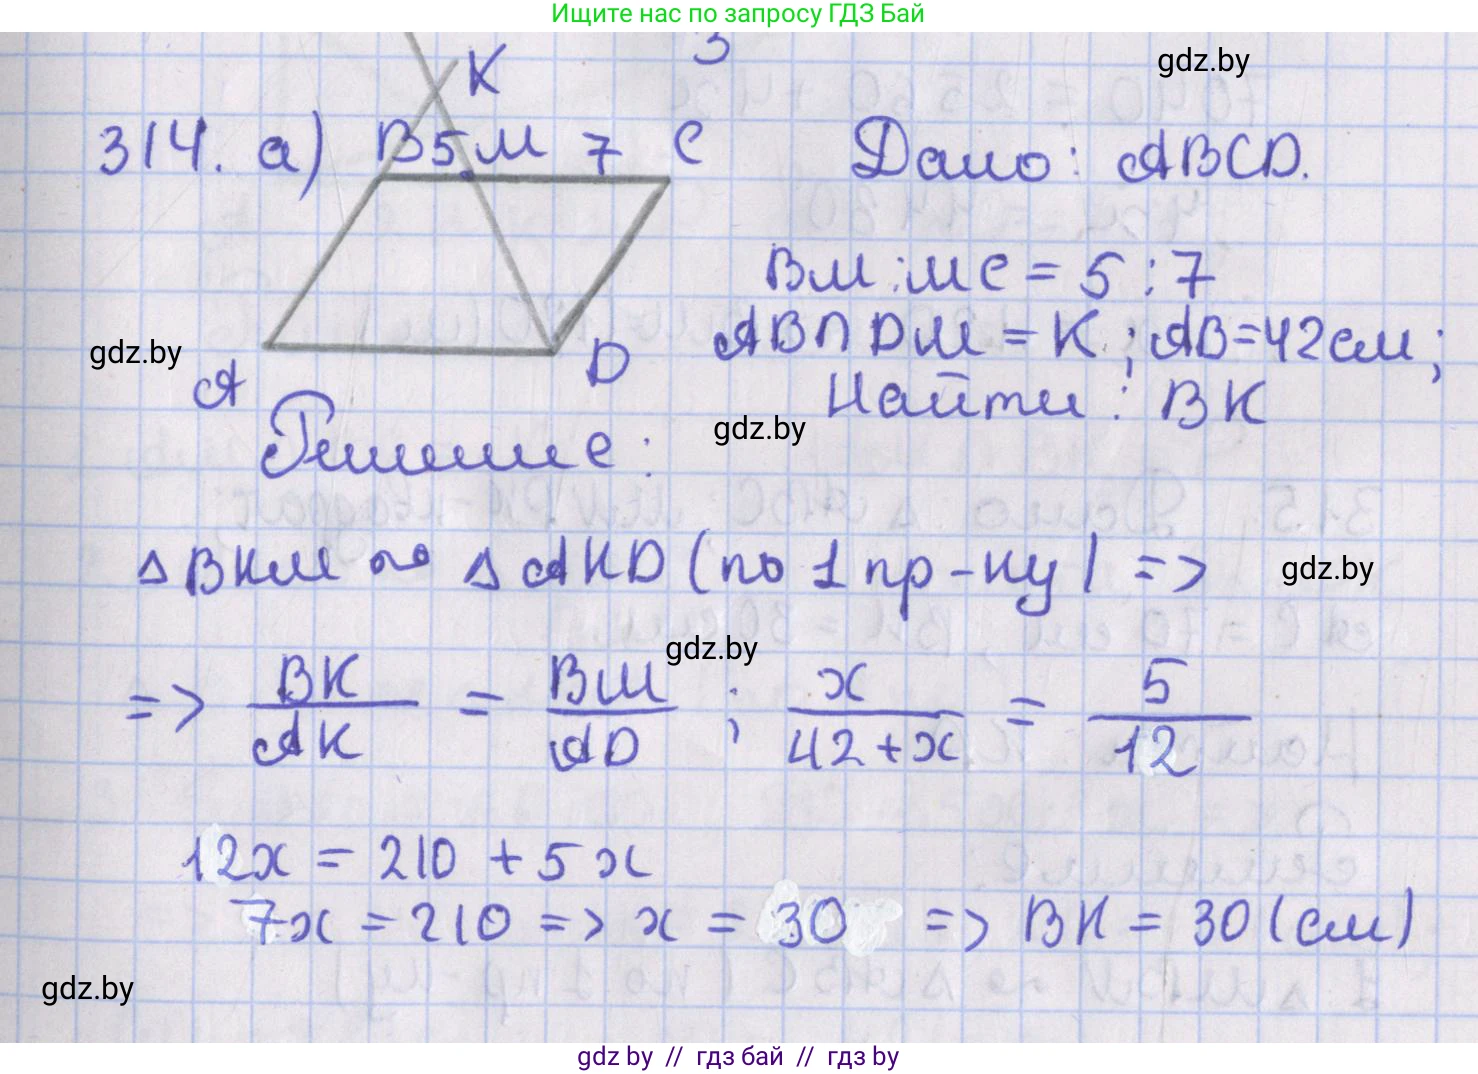 Ищите нас по запросу ГДЗ Бай
3
gdz.by
K
314. а) B 5 M 7 C Дано: ABCD.
BM : MC = 5 : 7
gdz.by
AB ∩ DM = K ; AB = 42 см ;
A D
Найти : BK
gdz.by
Решение :
△ BKM ∾ △ AKD (по 1 пр-ку) =>
gdz.by
gdz.by
=> BK/AK = BM/AD ; x/(42+x) = 5/12
12x = 210 + 5x
7x = 210 => x = 30 => BK = 30 (см)
gdz.by
gdz by // гдз бай // гдз by